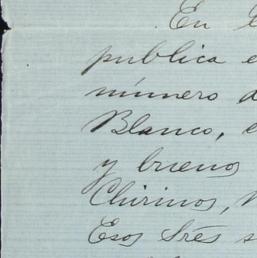 En
publica
número
Blanco,
y buenos
Chirinos,
Esos trés